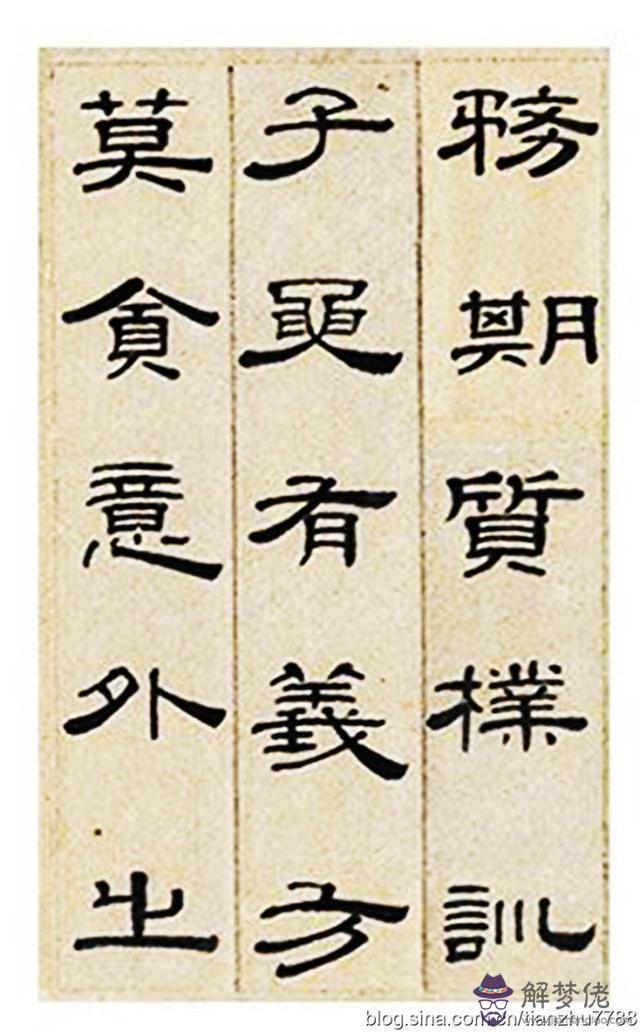 務期質樸訓
子要有義方
莫貪意外之
解梦佬
www.jiemenglao.com
blog.sina.com.cn/tianzhu7788